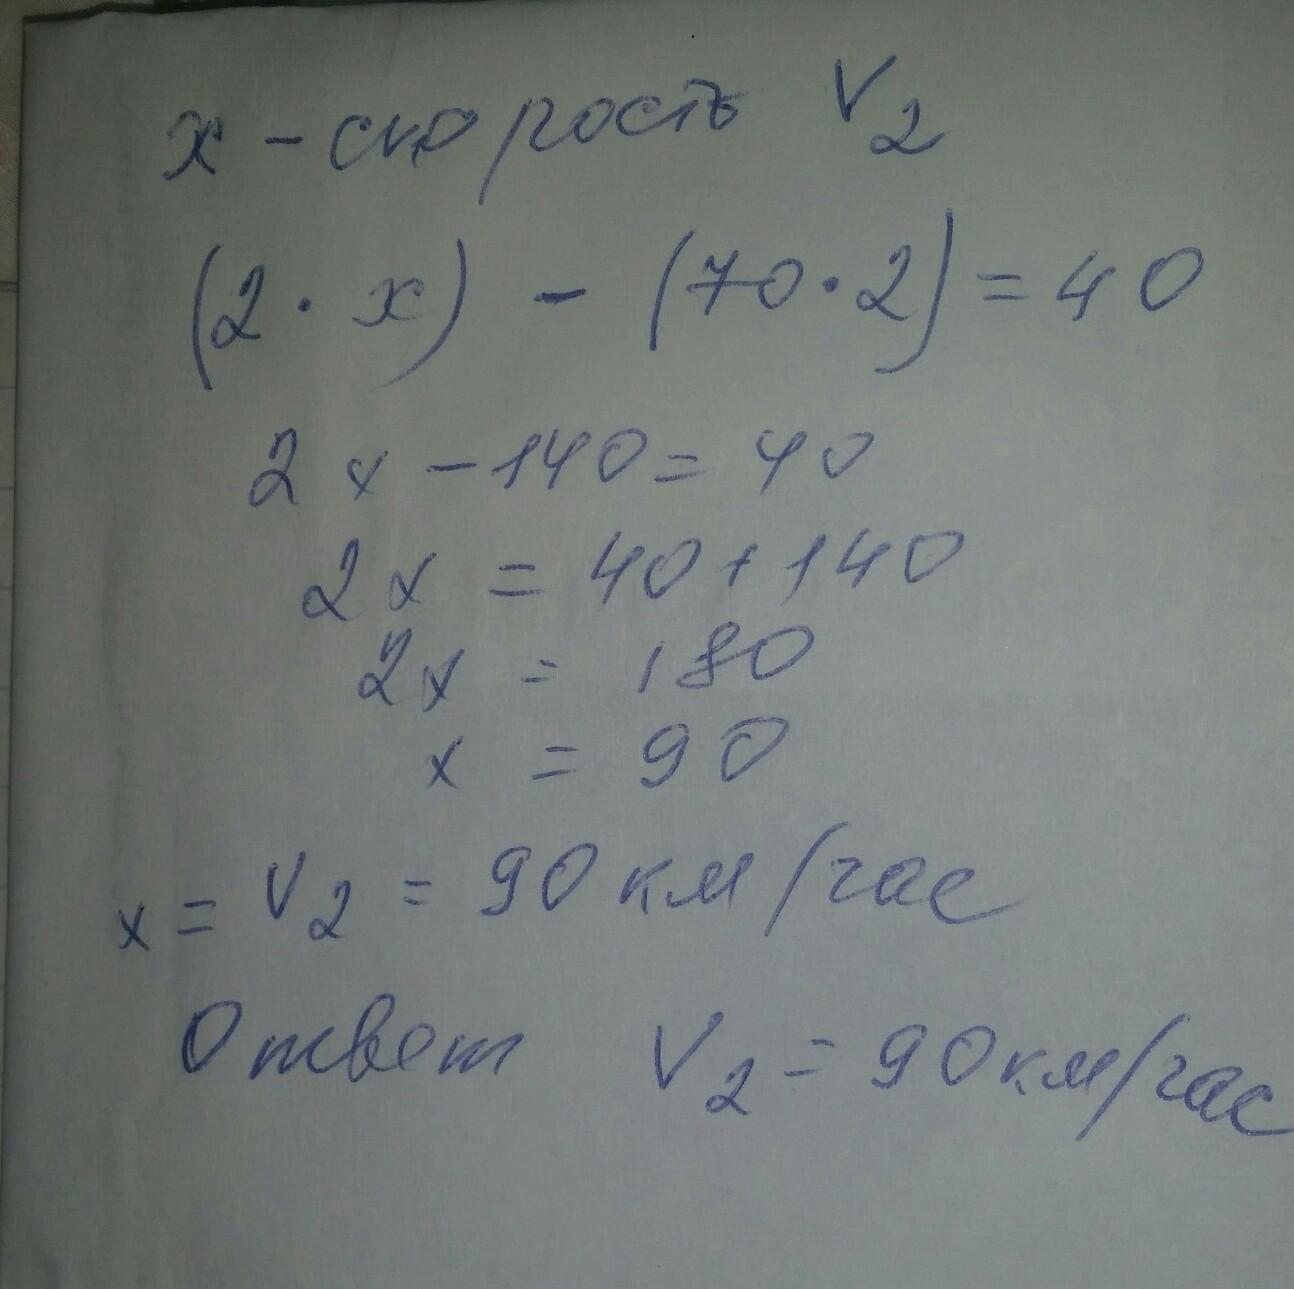 x - скорость V₂
(2 · x) - (70 · 2) = 40
2x - 140 = 40
2x = 40 + 140
2x = 180
x = 90
x = V₂ = 90 км/час
Ответ V₂ = 90 км/час